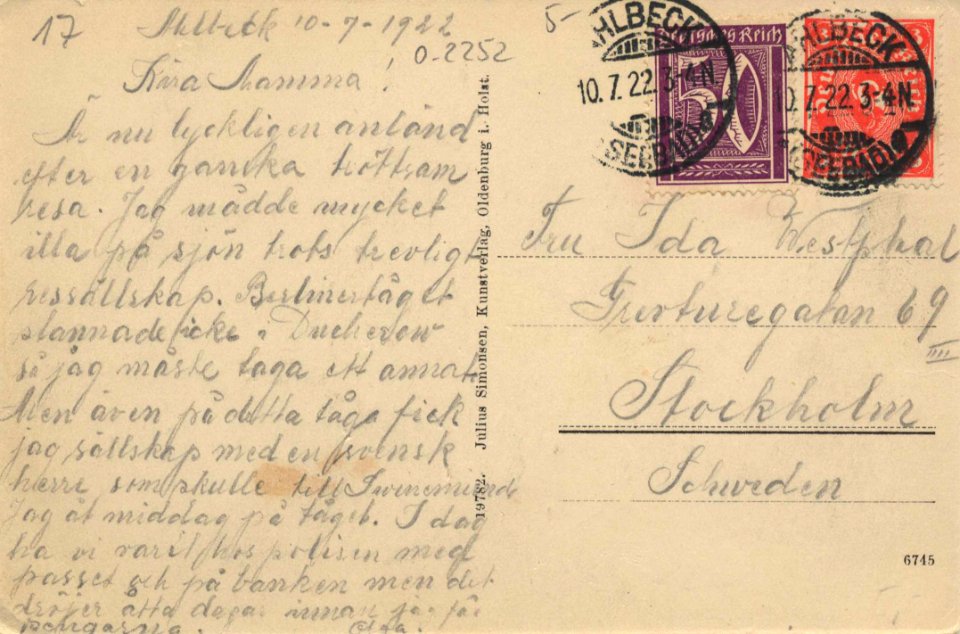 17
Ahlbeck 10-7-1922
0-2252
Kära Mamma!
Är nu lyckligen anländ
efter en ganska tröttsam
resa. Jag mådde mycket
illa på sjön trots trevligt
ressällskap. Berlinertåget
stannade icke i Ducherow
så jag måste taga ett annat
Men även på detta tåg fick
jag sällskap med en svensk
herre som skulle till Swinemünde
Jag åt middag på tåget. I dag
ha vi varit hos polisen med
passet och på banken men det
dröjer åtta dagar innan jag får
pengarna.
19782. Julius Simonsen, Kunstverlag, Oldenburg i. Holst.
5-
AHLBECK
10.7.22.3-4N.
(SEEBAD)
Deutsches Reich
50
AHLBECK
10.7.22.3-4N.
(SEEBAD)
Fru Ida Westphal
Grevturegatan 69
III
Stockholm
Schweden
6745